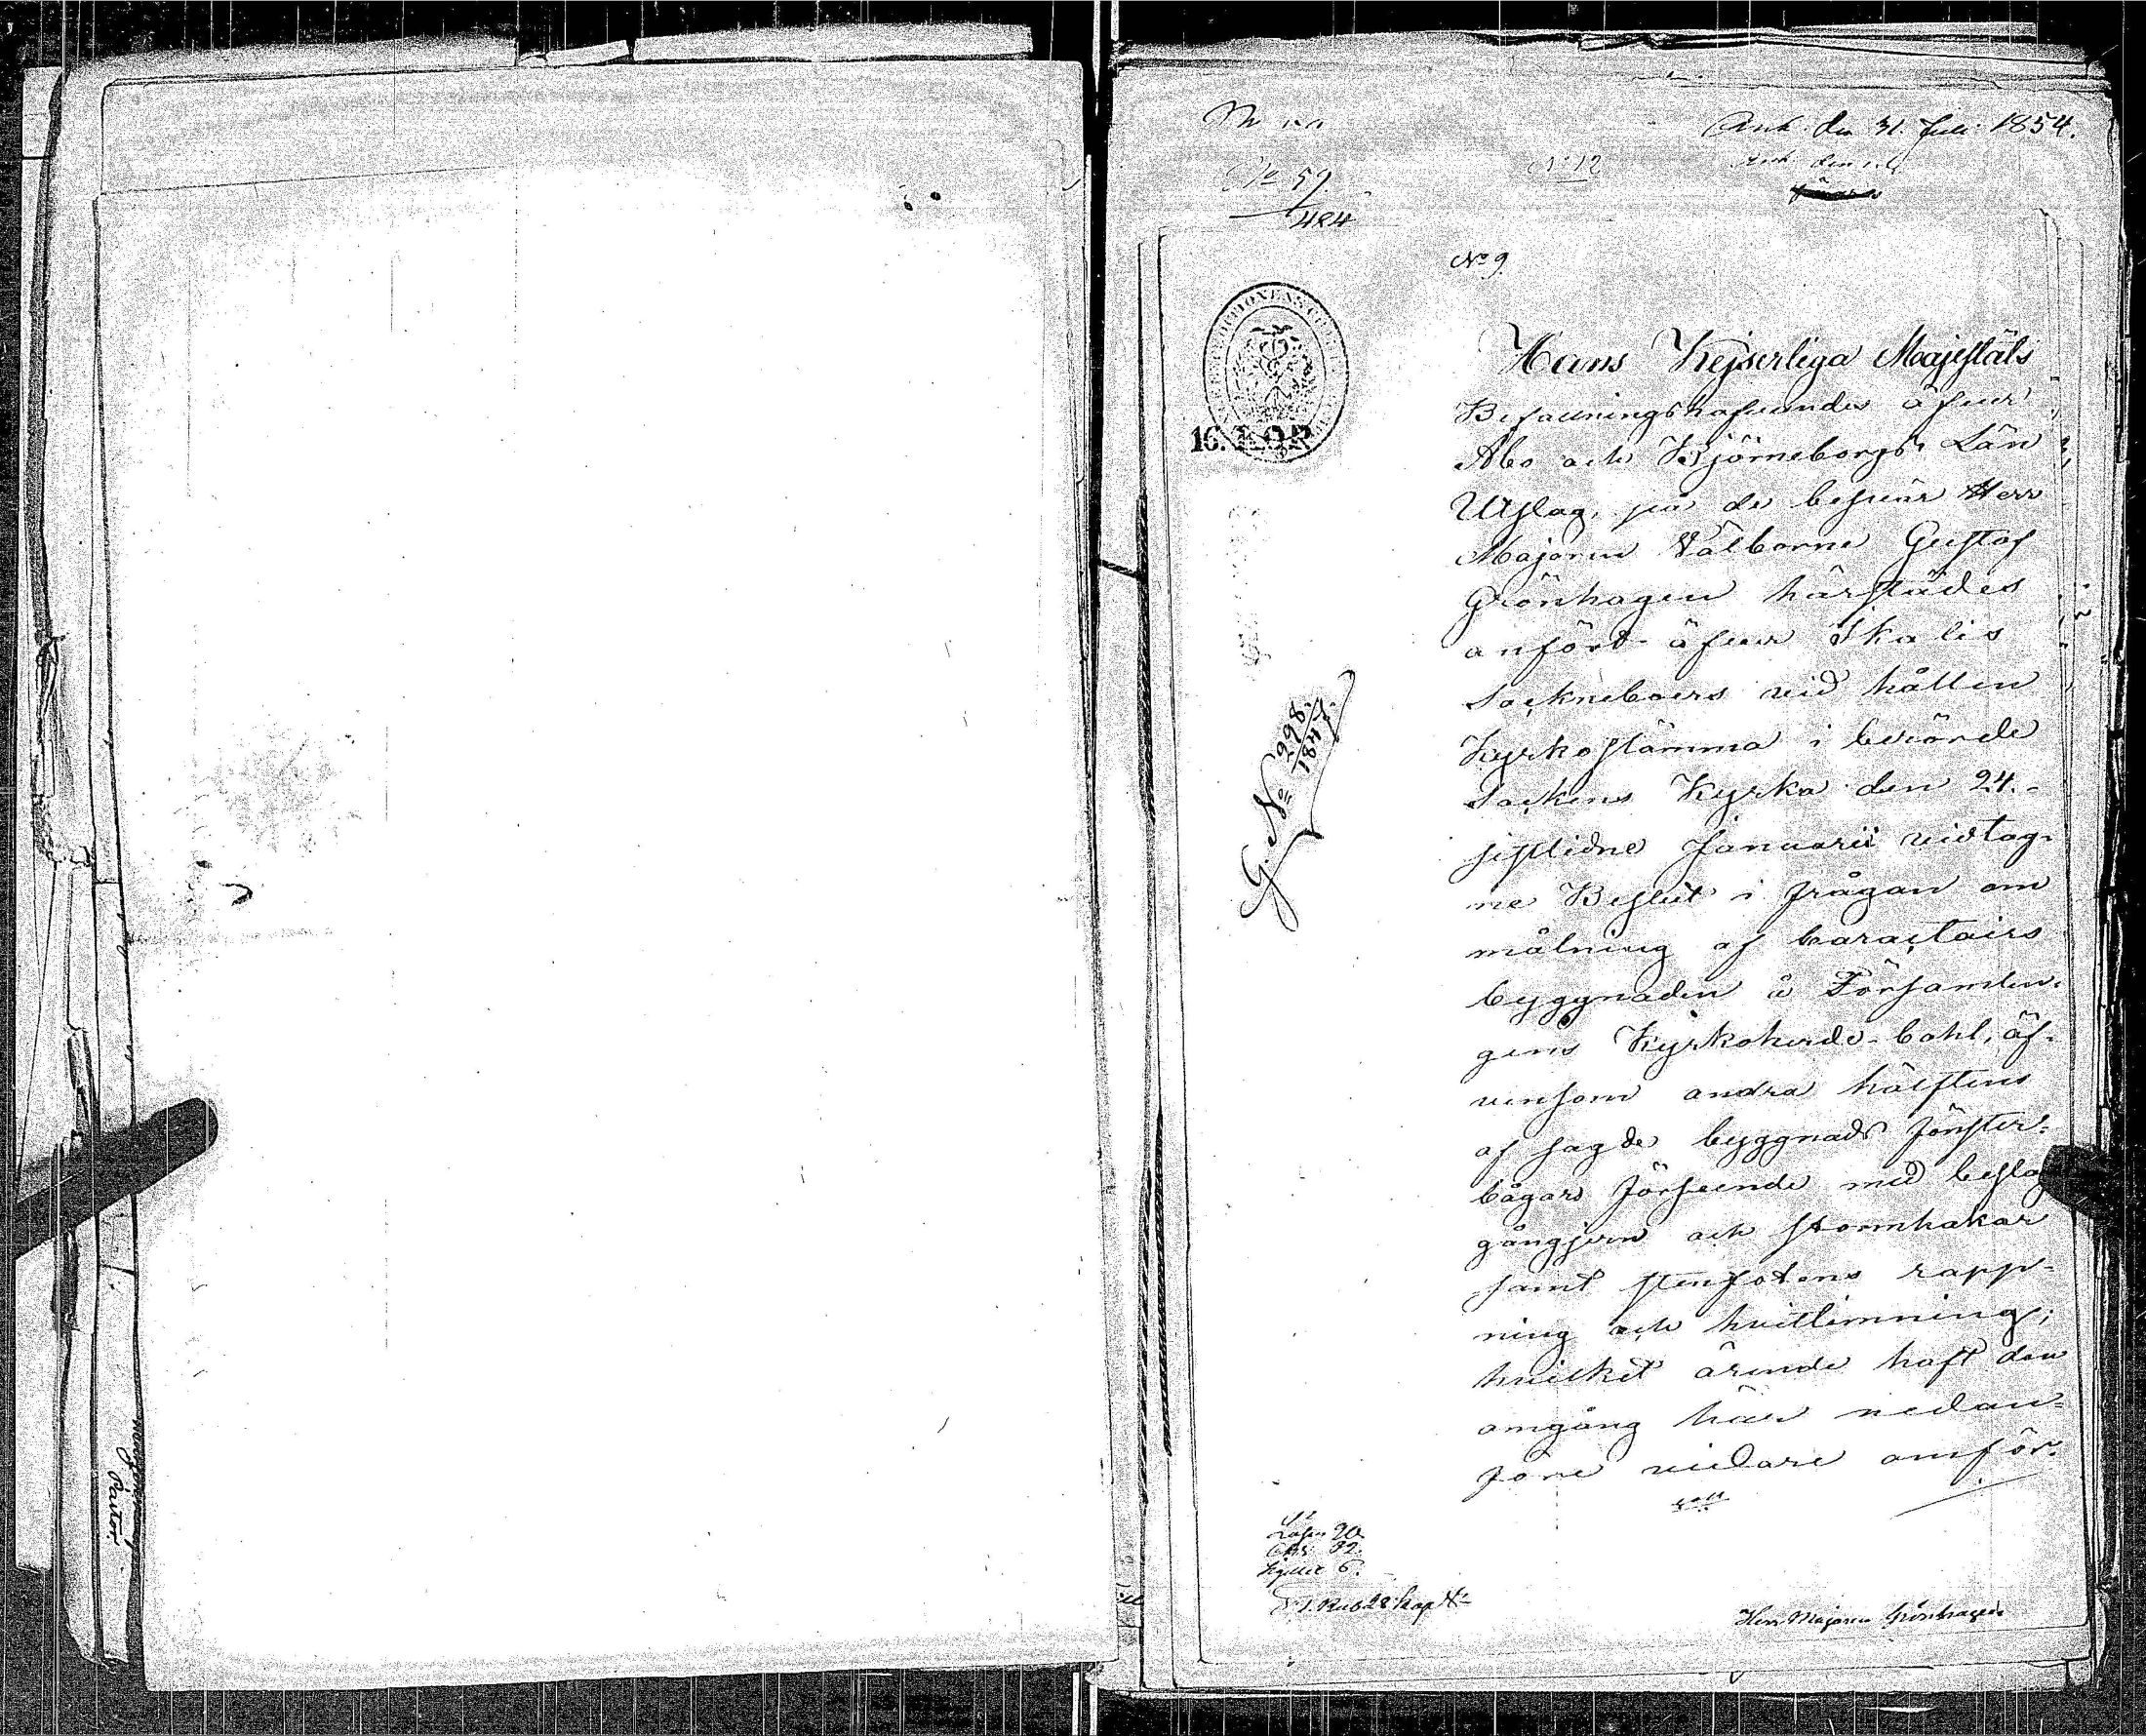 Pastor.
Ank. den 31. Juli 1854.
No 12
Ank. den
No 59.
484
No 9.
16. KOP.
Hans Kejserliga Majestäts
Befallningshafvandes öfver
Åbo och Björneborgs Län
Utslag, på de besvär Herr
Majoren Välborne Gustaf
Grönhagen härstädes
anfört öfver Ikalis
Sockneboers vid hållen
Kyrkostämma i berörde
Sockens Kyrka den 24.
sistlidne Januarii vidtag-
ne Beslut i frågan om
målning af caractairs
byggnaden å Församlin-
gens Kyrkoherde-bohl, äf-
vensom andra hälftens
af sagde byggnads fönster-
bågars förseende med beslag
gångjern och stormhakar
samt stenfotens rapp-
ning och hvitlimning;
hvilket ärende haft den
omgång här nedan-
före vidare omför-
G. No 298.
1847.
Lösen 20.
Chs 82.
Sigillet 6.
1. Rub 28 kop Sr
Herr Majoren Grönhagen